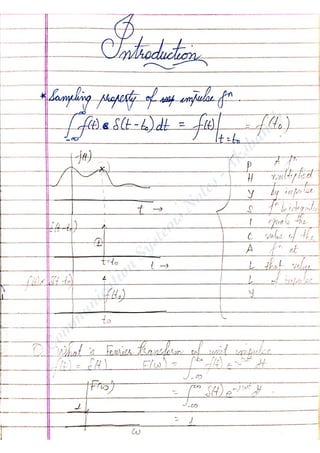 Introduction
* Sampling property of impulse fn.
∫_{-∞}^{∞} f(t) δ(t-t₀) dt = f(t)|_{t=t₀} = f(t₀)
f(t)
t →
δ(t-t₀)
1
t=t₀ t →
f(t) δ(t-t₀)
f(t₀)
t₀
PHYSICALLY
A fn
multiplied
by impulse
fn & integrated
equals the
value of the
fn at
that value
of impulse
Q. What is Fourier transform of unit impulse
f(t) = δ(t) F(ω) = ∫_{-∞}^{∞} f(t) e^{-jωt} dt
F(ω)
= ∫_{-∞}^{∞} δ(t) e^{-jωt} dt.
1
= 1
ω
Communication Systems Notes